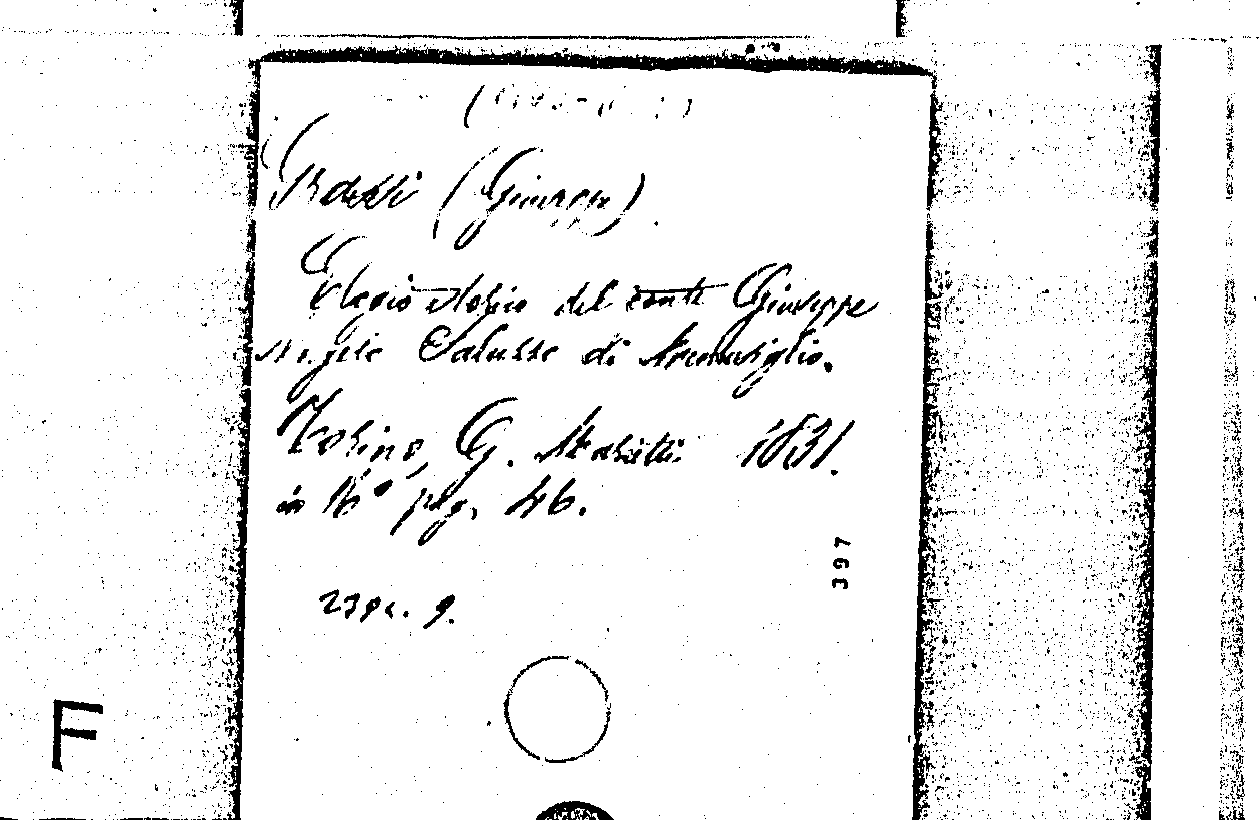 Grassi (Giuseppe).
Elogio storico del conte Giuseppe
Angelo Saluzzo di Monesiglio.
Torino, G. Marietti 1831.
in 16° pag. 46.
397
9.
F